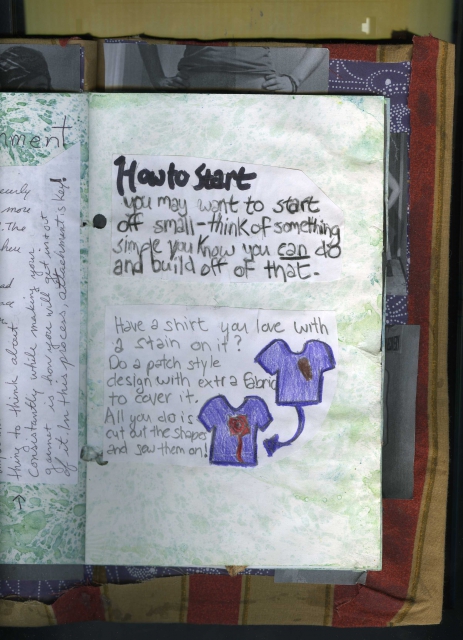 nment
more
.The
here
thing to think about
Consistantly while making your
garmet is how you will get in & out
of it. In this process, attachment is key!
How to Start
you may want to start
off small-think of something
simple you know you can do
and build off of that.
Have a shirt you love with
a stain on it?
Do a patch style
design with extra fabric
to cover it.
All you do is
cut out the shapes
and sew them on!